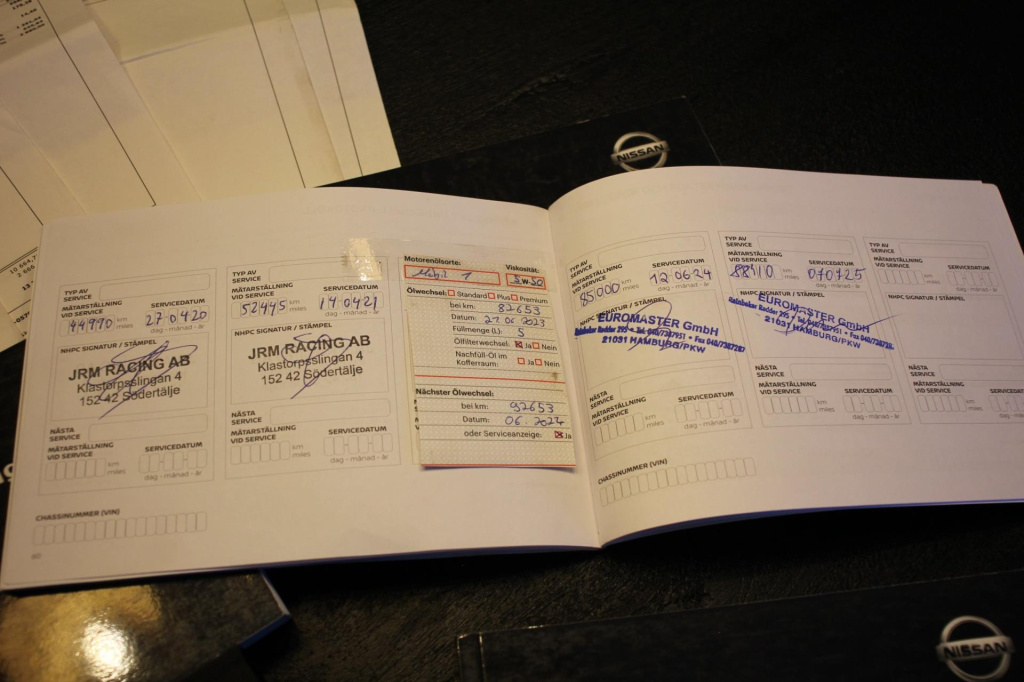 NISSAN
TYP AV
SERVICE
MÄTARSTÄLLNING
VID SERVICE
SERVICEDATUM
44990 km
miles
27 04 20
dag - månad - år
NHPC SIGNATUR / STÄMPEL
JRM RACING AB
Klastorpsslingan 4
152 42 Södertälje
NÄSTA
SERVICE
MÄTARSTÄLLNING
VID SERVICE
SERVICEDATUM
km
miles
dag - månad - år
CHASSINUMMER (VIN)
60
TYP AV
SERVICE
MÄTARSTÄLLNING
VID SERVICE
SERVICEDATUM
52445 km
miles
19 04 21
dag - månad - år
NHPC SIGNATUR / STÄMPEL
JRM RACING AB
Klastorpsslingan 4
152 42 Södertälje
NÄSTA
SERVICE
MÄTARSTÄLLNING
VID SERVICE
SERVICEDATUM
km
miles
dag - månad - år
Motorenölsorte:
Viskosität:
Mobil 1
W-
Ölwechsel: Standard Plus Premium
bei km: 82653
Datum: 27.06 2023
Füllmenge (L): 5
Ölfilterwechsel: Ja Nein
Nachfüll-Öl im
Kofferraum: Ja Nein
Nächster Ölwechsel:
bei km: 92653
Datum: 06.2024
oder Serviceanzeige: Ja
TYP AV
SERVICE
MÄTARSTÄLLNING
VID SERVICE
SERVICEDATUM
85000 km
miles
12 06 24
dag - månad - år
NHPC SIGNATUR / STÄMPEL
EUROMASTER GmbH
21031 HAMBURG/PKW
NÄSTA
SERVICE
MÄTARSTÄLLNING
VID SERVICE
SERVICEDATUM
km
miles
dag - månad - år
CHASSINUMMER (VIN)
TYP AV
SERVICE
MÄTARSTÄLLNING
VID SERVICE
SERVICEDATUM
88110 km
miles
07 07 25
dag - månad - år
NHPC SIGNATUR / STÄMPEL
EUROMASTER GmbH
21031 HAMBURG/PKW
NÄSTA
SERVICE
MÄTARSTÄLLNING
VID SERVICE
SERVICEDATUM
km
miles
dag - månad - år
TYP AV
SERVICE
MÄTARSTÄLLNING
VID SERVICE
SERVICEDATUM
km
miles
dag - månad - år
NHPC SIGNATUR / STÄMPEL
NÄSTA
SERVICE
MÄTARSTÄLLNING
VID SERVICE
SERVICEDATUM
km
miles
dag - månad - år
NISSAN